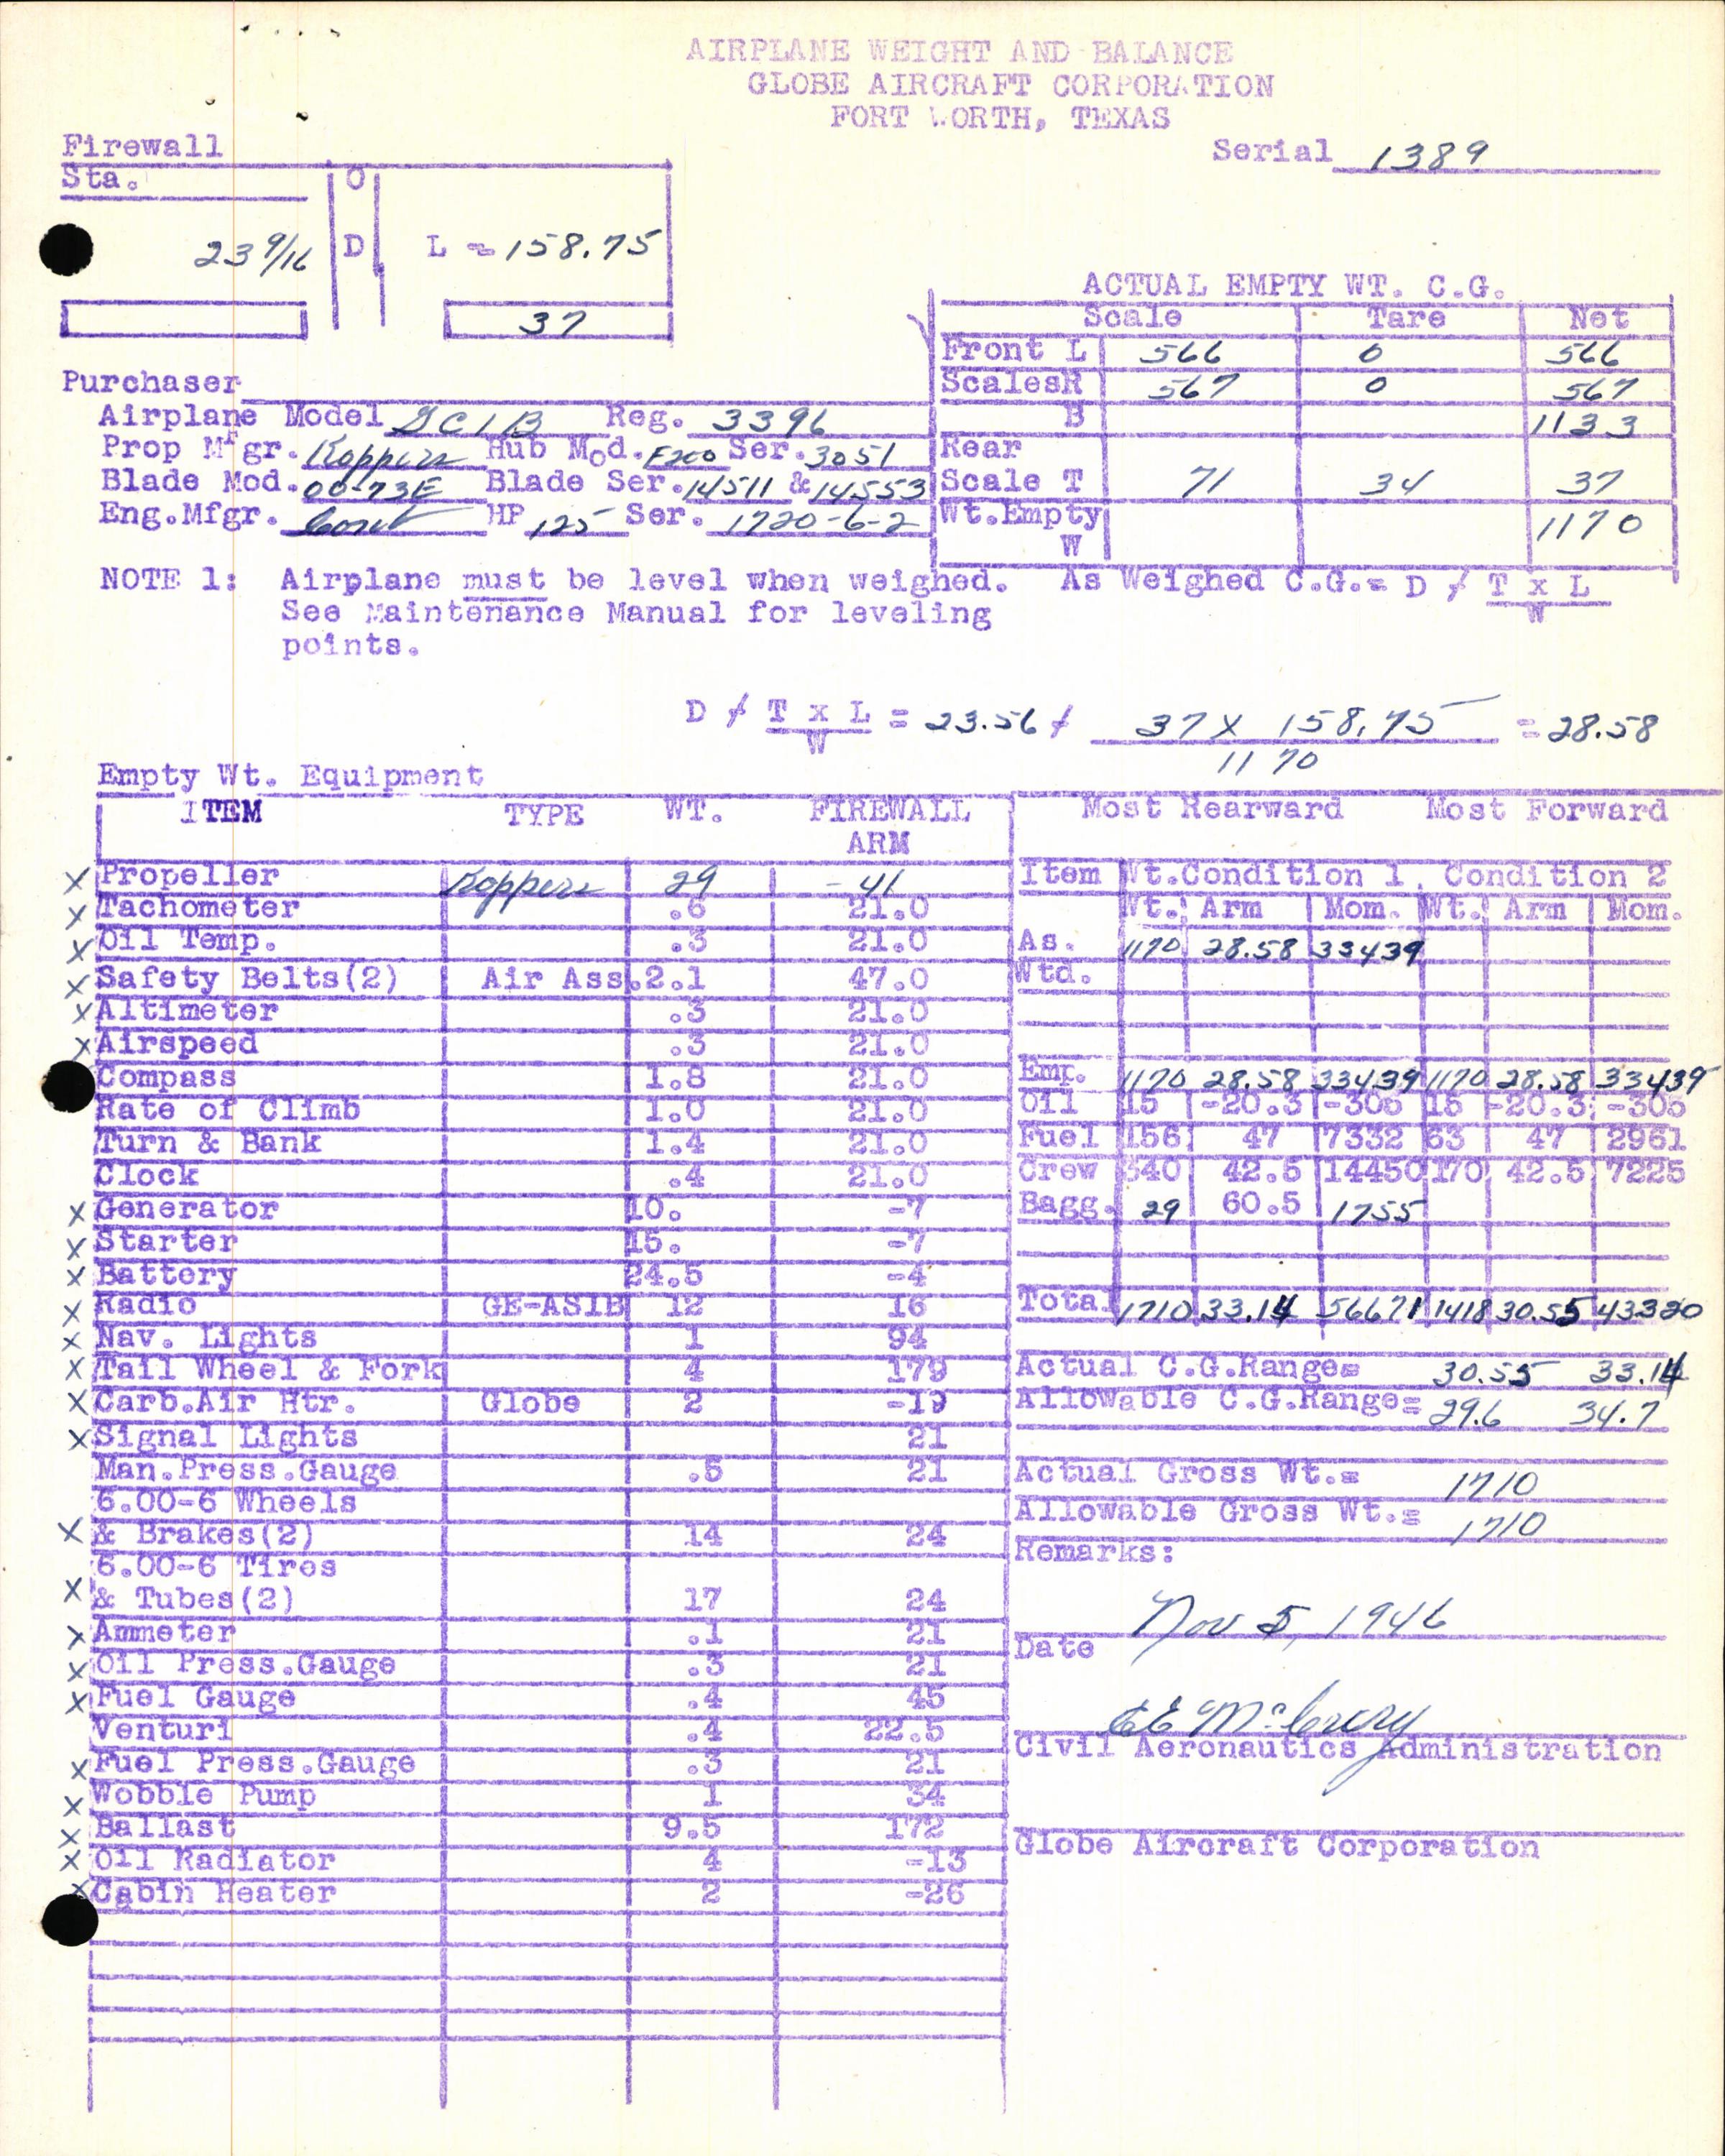 AIRPLANE WEIGHT AND BALANCE
GLOBE AIRCRAFT CORPORATION
FORT WORTH, TEXAS
Serial 1389
Firewall
Sta. O
23 9/16 D L = 158.75
37
ACTUAL EMPTY WT. C.G.
Scale Tare Net
Front L 566 0 566
Scales R 567 0 567
B 1133
Rear
Scale T 71 34 37
Wt. Empty 1170
W
Purchaser
Airplane Model GC1B Reg. 3396
Prop Mfgr. Koppers Hub Mod. F200 Ser. 3051
Blade Mod. 00-73E Blade Ser. 14511 & 14553
Eng.Mfgr. Cont HP 125 Ser. 1720-6-2
NOTE 1: Airplane must be level when weighed.
See Maintenance Manual for leveling
points.
As Weighed C.G.= D / T x L
W
D / T x L = 23.56 / 37 X 158.75 = 28.58
W 1170
Empty Wt. Equipment
ITEM TYPE WT. FIREWALL
ARM
X Propeller Koppers 29 -41
X Tachometer .6 21.0
X Oil Temp. .3 21.0
X Safety Belts(2) Air Ass. 2.1 47.0
X Altimeter .3 21.0
X Airspeed .3 21.0
Compass 1.8 21.0
Rate of Climb 1.0 21.0
Turn & Bank 1.4 21.0
Clock .4 21.0
X Generator 10. -7
X Starter 15. -7
X Battery 24.5 -4
X Radio GE-AS1B 12 16
X Nav. Lights 1 94
X Tail Wheel & Fork 4 179
X Carb.Air Htr. Globe 2 -19
X Signal Lights 21
Man.Press.Gauge .5 21
6.00-6 Wheels
X & Brakes(2) 14 24
6.00-6 Tires
X & Tubes(2) 17 24
X Ammeter .1 21
X Oil Press.Gauge .3 21
X Fuel Gauge .4 45
Venturi .4 22.5
X Fuel Press.Gauge .3 21
X Wobble Pump 1 34
X Ballast 9.5 172
X Oil Radiator 4 -13
X Cabin Heater 2 -26
Most Rearward Most Forward
Item Wt.Condition 1, Condition 2
Wt. Arm Mom. Wt. Arm Mom.
As. 1170 28.58 33439
Wtd.
Emp. 1170 28.58 33439 1170 28.58 33439
Oil 15 -20.3 -305 15 -20.3 -305
Fuel 156 47 7332 63 47 2961
Crew 340 42.5 14450 170 42.5 7225
Bagg. 29 60.5 1755
Total 1710 33.14 56671 1418 30.55 43320
Actual C.G.Range= 30.55 33.14
Allowable C.G.Range= 29.6 34.7
Actual Gross Wt.= 1710
Allowable Gross Wt.= 1710
Remarks:
Nov 5, 1946
Date
Civil Aeronautics Administration
Globe Aircraft Corporation